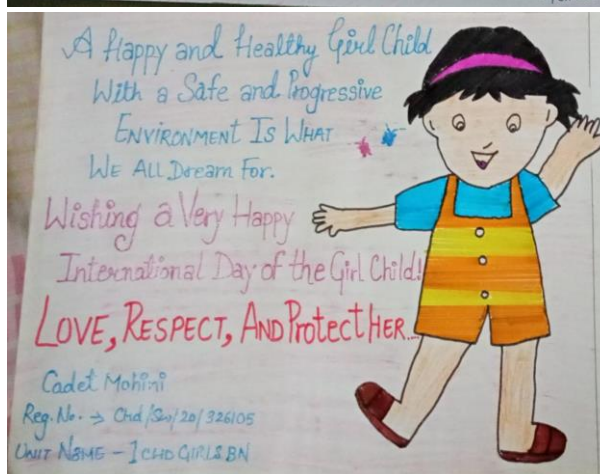 A Happy and Healthy Girl Child
With a Safe and Progressive
ENVIRONMENT IS WHAT
WE ALL Dream For.
Wishing a Very Happy
International Day of the Girl Child!
LOVE, RESPECT, AND Protect HER....
Cadet Mohini
Reg. No. → Chd/SW/20/326105
UNIT NAME - 1 CHD GIRLS BN